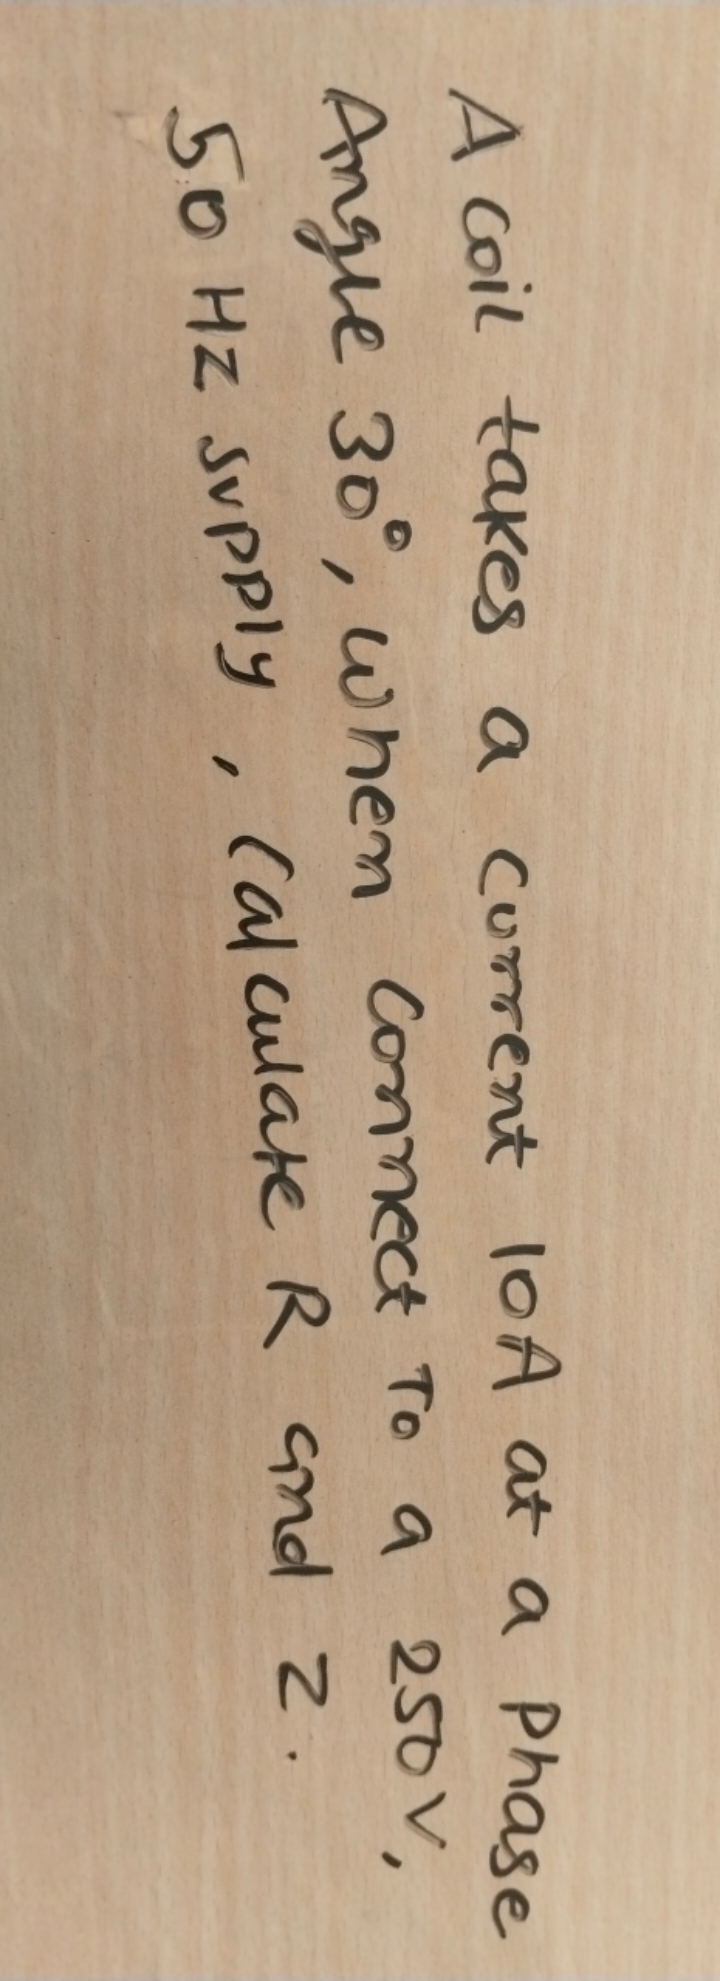 A coil takes a current 10A at a phase
Angle 30°, when connect To a 250V,
50 Hz supply, Calculate R and Z.